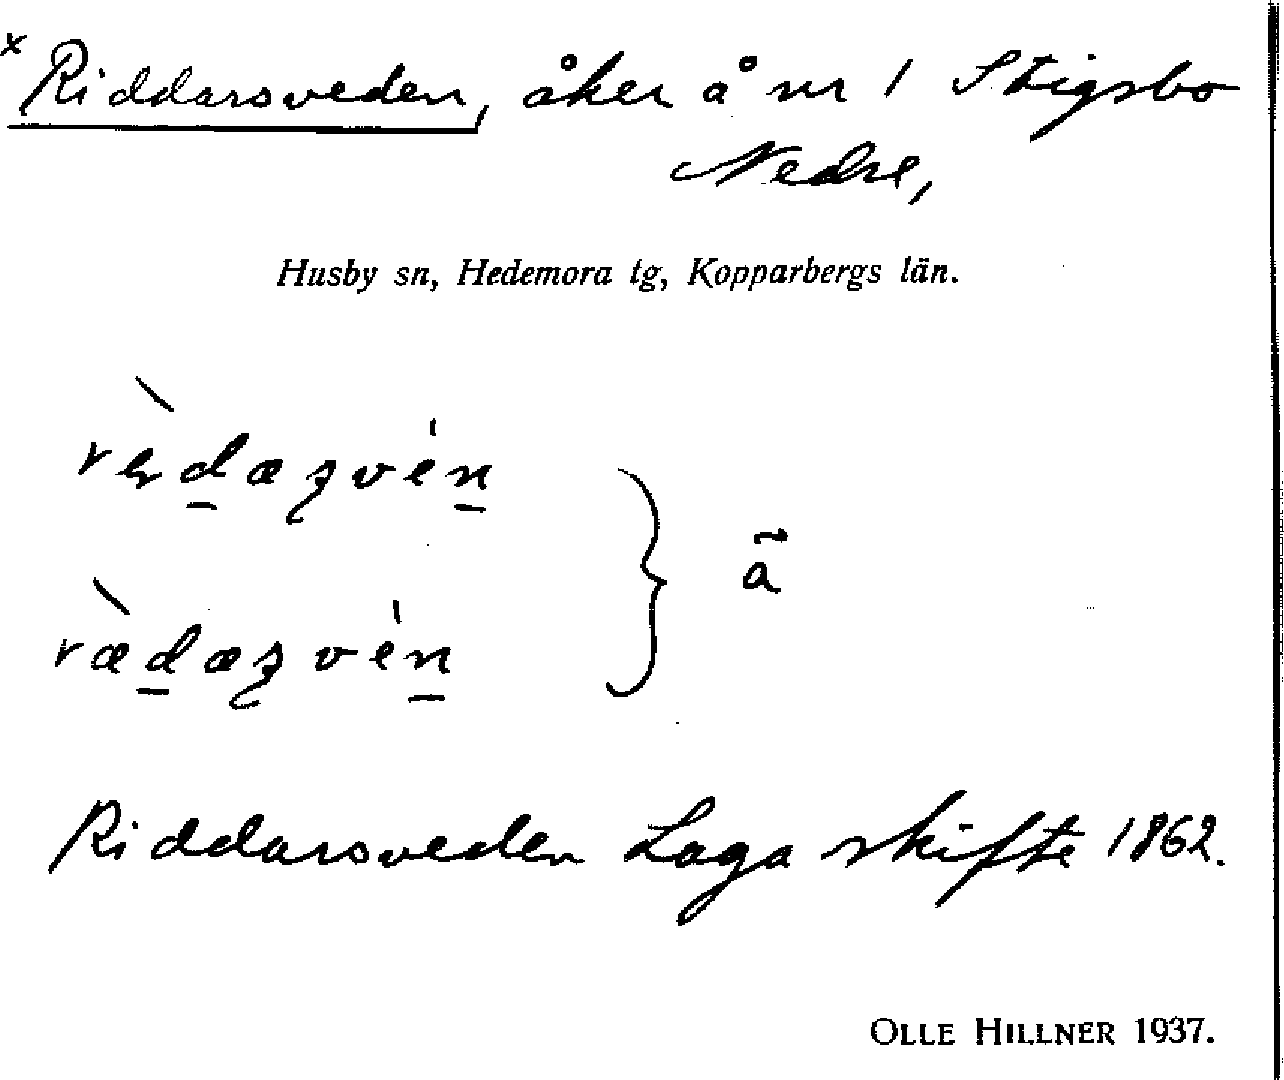 x Riddarsveden, åker å nr 1 Stigsbo
Nedre,
Husby sn, Hedemora tg, Kopparbergs län.
Riddarsveden Laga skifte 1862.
OLLE HILLNER 1937.